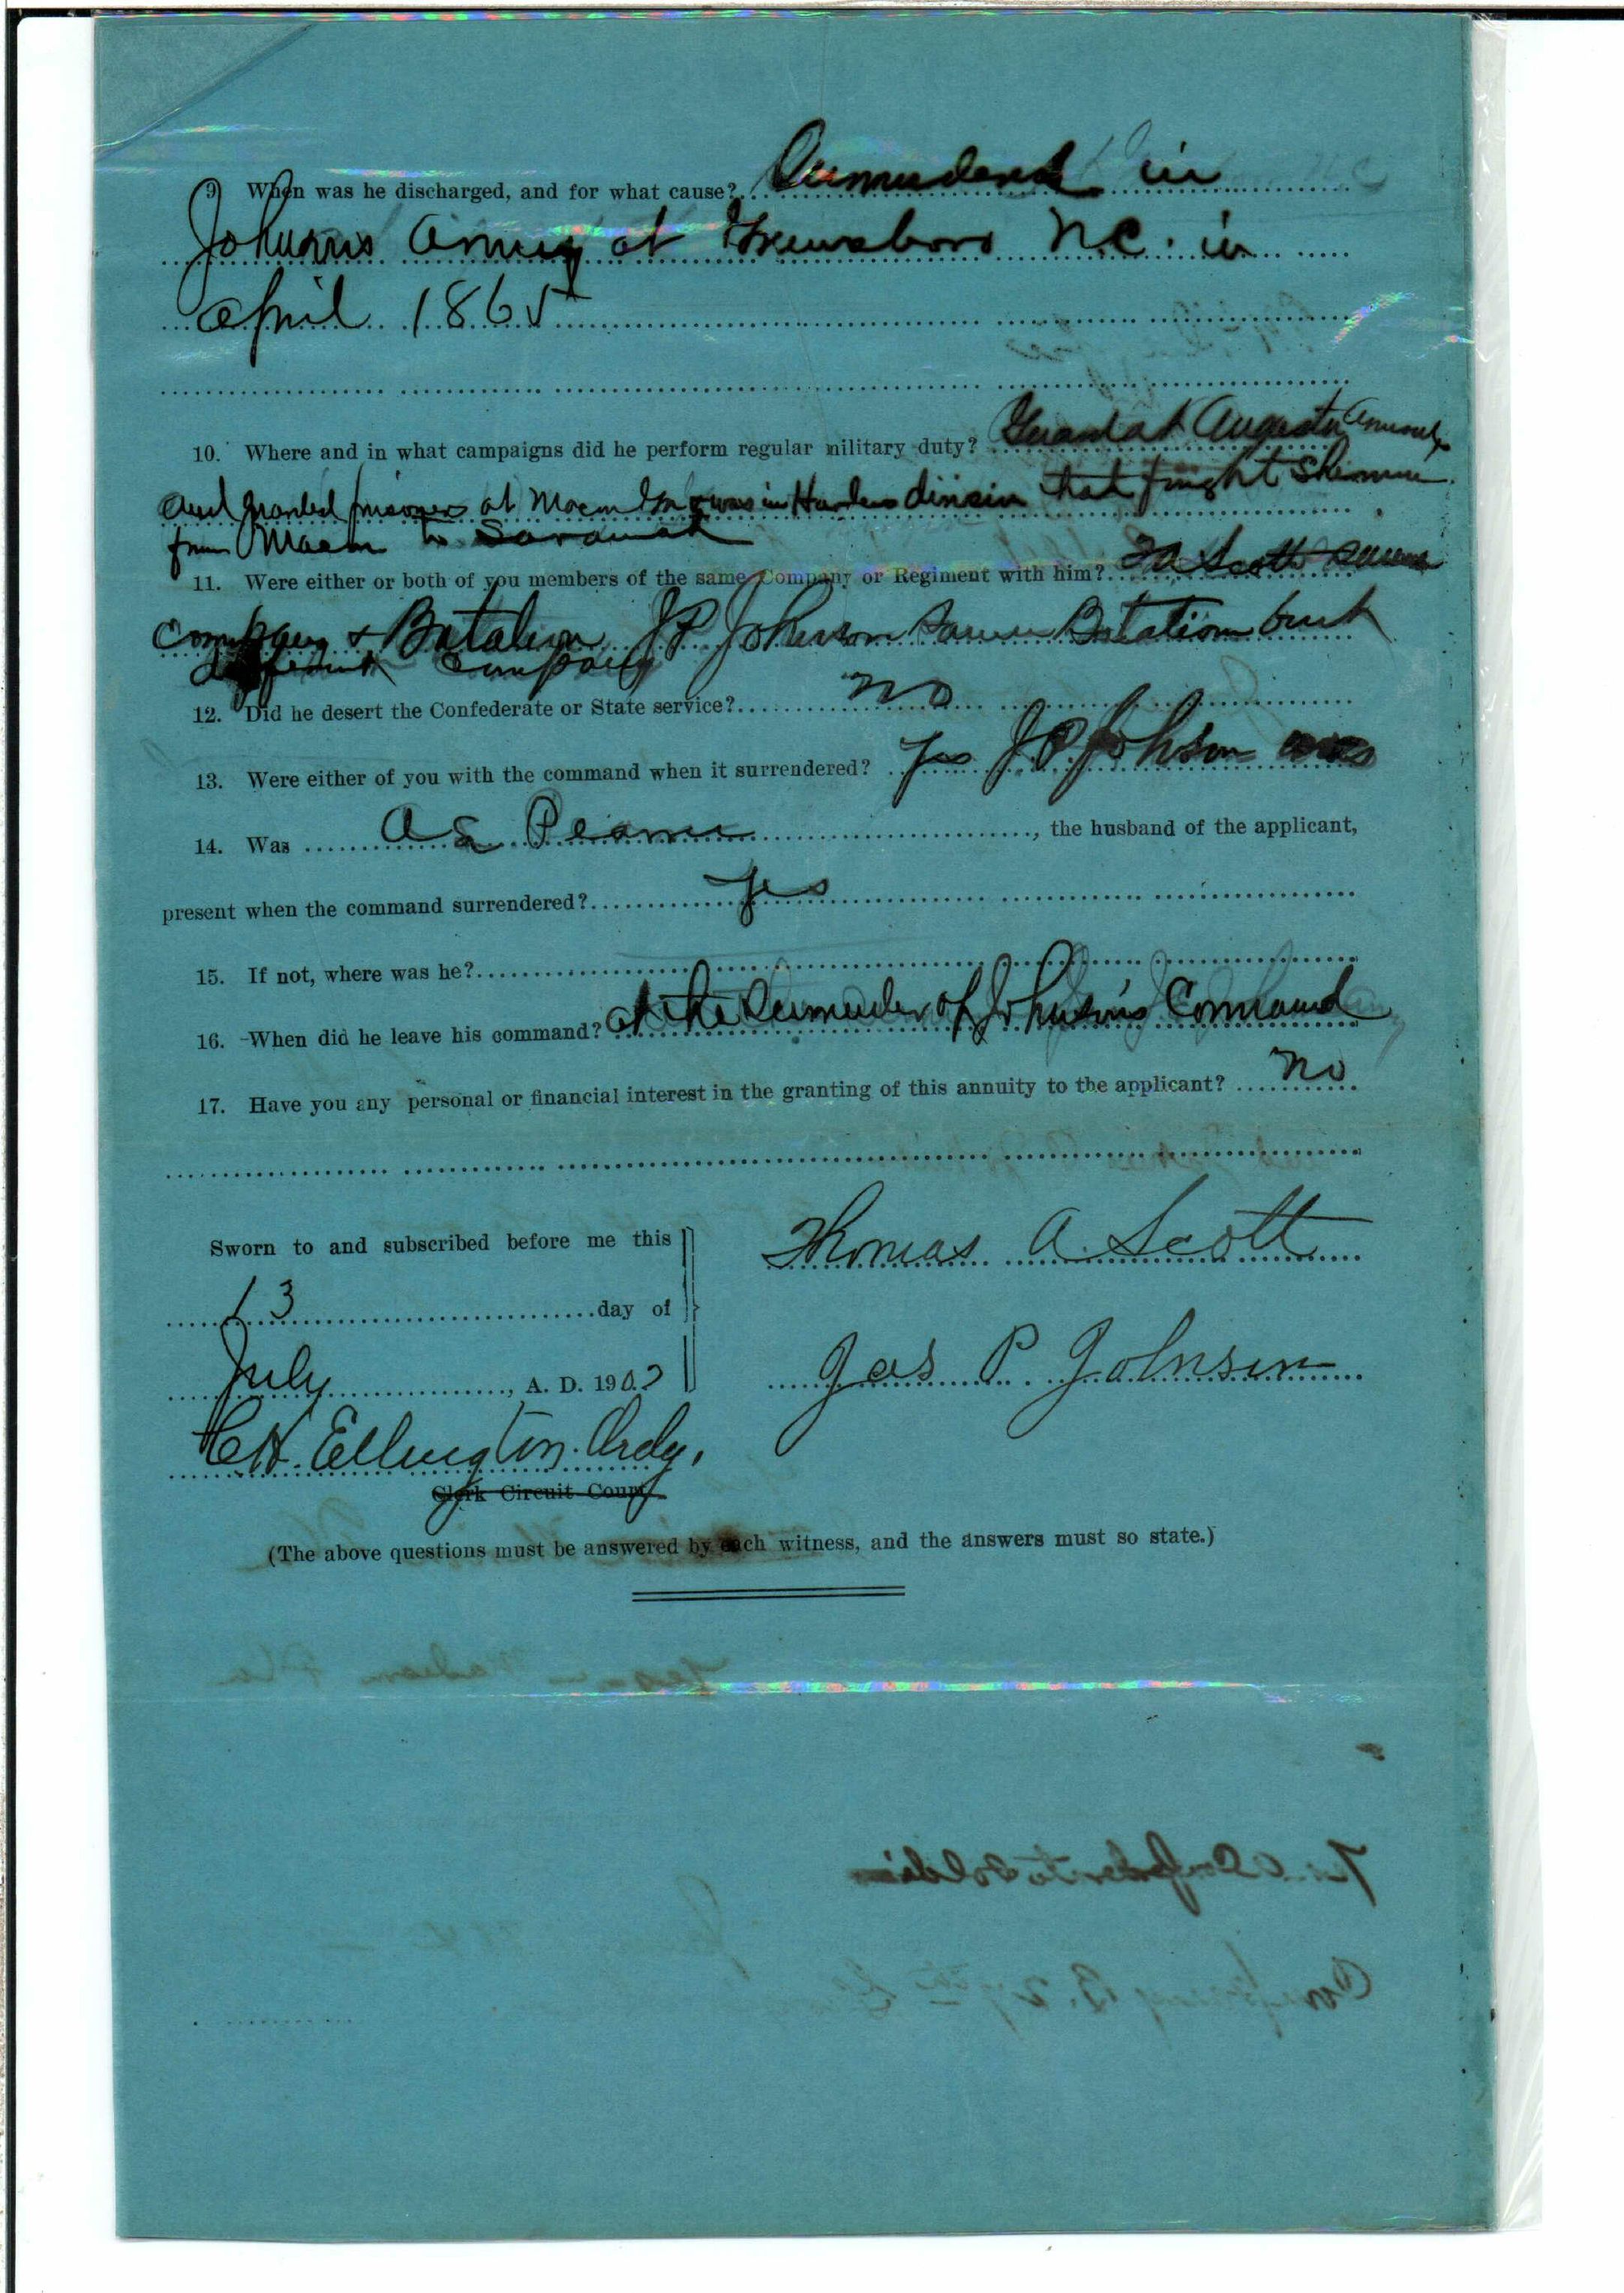 9. When was he discharged, and for what cause? Surrendered in
Johnsons Army at Greensboro N.C. in
April 1865
10. Where and in what campaigns did he perform regular military duty? Guard at Augusta Arsenal
and guarded prisoners at Macon Ga & was in division that fought Sherman
from Macon to Savannah
11. Were either or both of you members of the same Company or Regiment with him? TA Scott same
Company & Batalion JP Johnson same Batalion but
different Company
12. Did he desert the Confederate or State service? no
13. Were either of you with the command when it surrendered? yes JP Johnson was
14. Was A E , the husband of the applicant,
present when the command surrendered? yes
15. If not, where was he?
16. When did he leave his command? at the Surrender of Johnson's Command
17. Have you any personal or financial interest in the granting of this annuity to the applicant? no
Sworn to and subscribed before me this
Thomas A. Scott
13 day of
July, A. D. 190
Jas P. Johnson
C.H. Ellington. Ordy.
Clerk Circuit Court
(The above questions must be answered by each witness, and the answers must so state.)